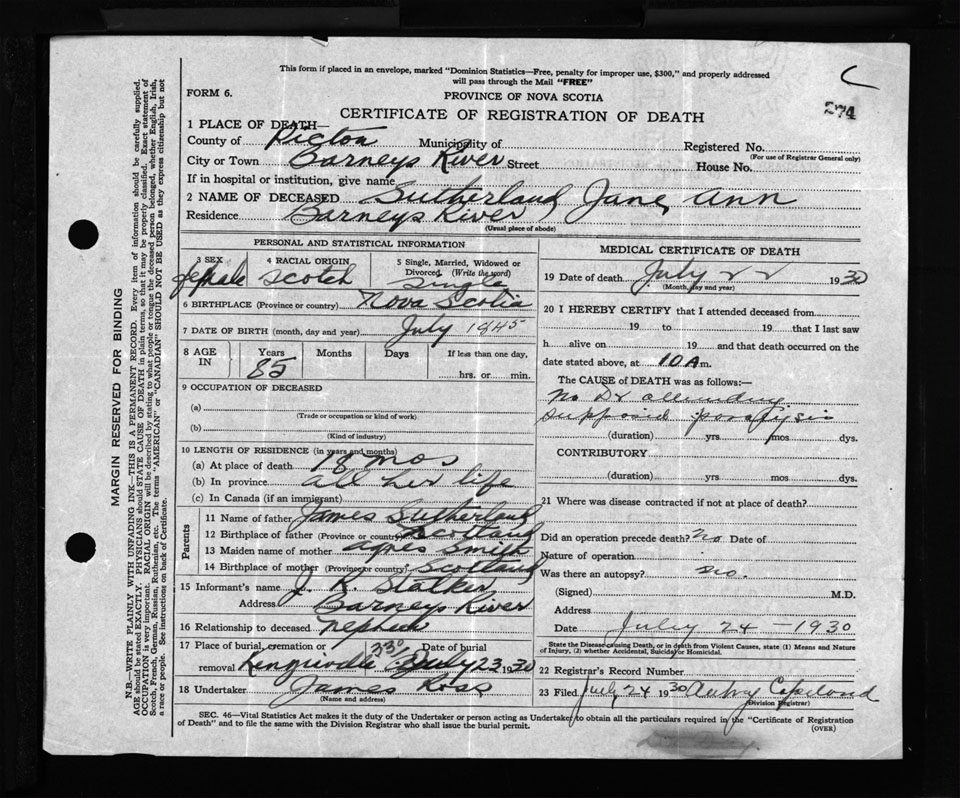 This form if placed in an envelope, marked "Dominion Statistics—Free, penalty for improper use, $300," and properly addressed
will pass through the Mail "FREE"
C
FORM 6.
PROVINCE OF NOVA SCOTIA
274
CERTIFICATE OF REGISTRATION OF DEATH
1 PLACE OF DEATH—
County of Pictou Municipality of Registered No.
(For use of Registrar General only)
City or Town Barneys River Street House No.
If in hospital or institution, give name
2 NAME OF DECEASED Sutherland Jane Ann
Residence Barneys River
(Usual place of abode)
PERSONAL AND STATISTICAL INFORMATION
3 SEX 4 RACIAL ORIGIN 5 Single, Married, Widowed or
Divorced. (Write the word)
female Scotch Single
6 BIRTHPLACE (Province or country) Nova Scotia
7 DATE OF BIRTH (month, day and year) July 1845
8 AGE IN Years Months Days If less than one day,
85 hrs. or min.
9 OCCUPATION OF DECEASED
(a)
(Trade or occupation or kind of work)
(b)
(Kind of industry)
10 LENGTH OF RESIDENCE (in years and months)
(a) At place of death 18 mos
(b) In province all her life
(c) In Canada (if an immigrant)
Parents
11 Name of father James Sutherland
12 Birthplace of father (Province or country) Scotland
13 Maiden name of mother Agnes Smith
14 Birthplace of mother (Province or country) Scotland
15 Informant's name J. R. Stalker
Address Barneys River
16 Relationship to deceased nephew
17 Place of burial, cremation or Date of burial
removal July 23 1930
18 Undertaker James Ross
(Name and address)
MEDICAL CERTIFICATE OF DEATH
19 Date of death July 22 1930
(Month, day and year)
20 I HEREBY CERTIFY that I attended deceased from
19 to 19 that I last saw
h alive on 19 and that death occurred on the
date stated above, at 10 A m.
The CAUSE of DEATH was as follows:—
No Dr attending
supposed paralysis
(duration) yrs. mos. dys.
CONTRIBUTORY
(duration) yrs. mos. dys.
21 Where was disease contracted if not at place of death?
Did an operation precede death? no Date of
Nature of operation
Was there an autopsy? no.
(Signed) M.D.
Address
Date July 24 - 1930
State the Disease causing Death, or in death from Violent Causes, state (1) Means and Nature
of Injury, (2) whether Accidental, Suicidal or Homicidal.
22 Registrar's Record Number
23 Filed July 24 1930 Aubrey Copeland
(Division Registrar)
SEC. 46—Vital Statistics Act makes it the duty of the Undertaker or person acting as Undertaker to obtain all the particulars required in the "Certificate of Registration
of Death" and to file the same with the Division Registrar who shall issue the burial permit. (OVER)
MARGIN RESERVED FOR BINDING
N.B.—WRITE PLAINLY WITH UNFADING INK—THIS IS A PERMANENT RECORD. Every item of information should be carefully supplied.
AGE should be stated EXACTLY. PHYSICIANS should STATE CAUSE OF DEATH in plain terms, so that it may be properly classified. Exact statement of
OCCUPATION is very important. RACIAL ORIGIN will be described by stating to what people or tongue the deceased person belonged, whether English, Irish,
Scotch, French, German, Russian, Ruthenian, etc. The terms "AMERICAN" or "CANADIAN" SHOULD NOT BE USED as they express citizenship but not
a race or people. See instructions on back of Certificate.